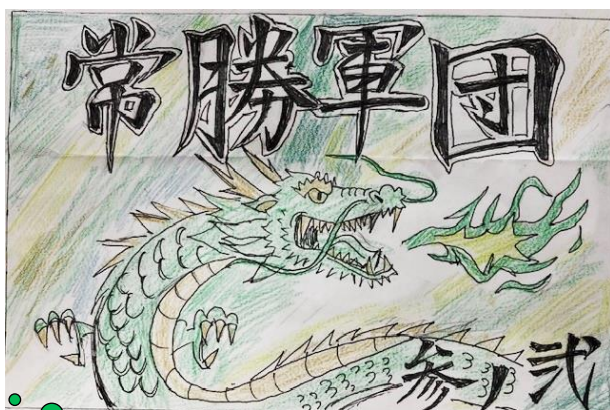 常勝軍団
参ノ弐